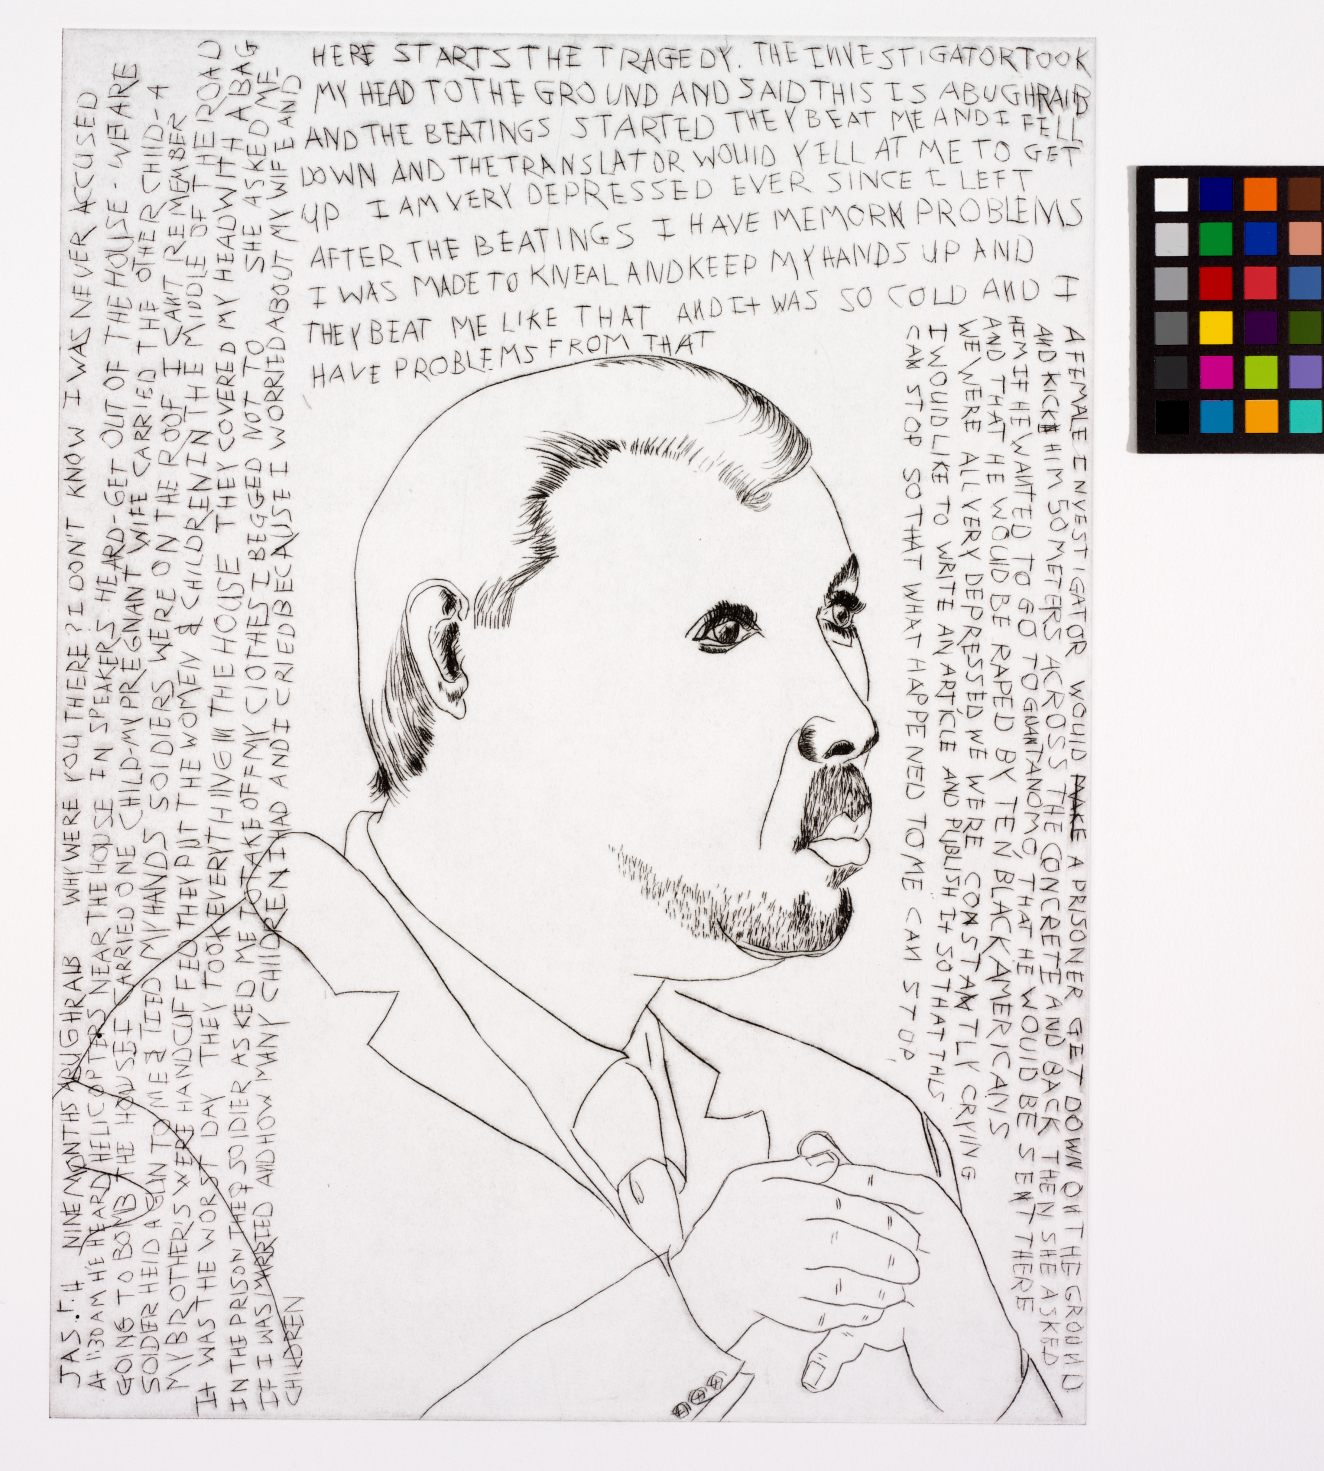 JAS.F.H NINE MONTHS ABUGHRAIB WHY WERE YOU THERE? I DON'T KNOW I WAS NEVER ACCUSED
At 1:30 AM HE HEARD HELICOPTERS NEAR THE HOUSE IN SPEAKERS HEARD-GET OUT OF THE HOUSE - WE ARE
GOING TO BOMB THE HOUSE I CARRIED ONE CHILD-MY PREGNANT WIFE CARRIED THE OTHER CHILD-A
SOLDER HELD A GUN TO ME & TIED MY HANDS SOLDIERS WERE ON THE ROOF I CANT REMEMBER
MY BROTHERS WERE HANDCUFFED THEY PUT THE WOMEN & CHILDREN IN THE MIDDLE OF THE ROAD
It WAS THE WORST DAY THEY TOOK EVERYTHING IN THE HOUSE THEY COVERED MY HEAD WITH A BAG
IN THE PRISON THE ♀ SOLDIER ASKED ME TO TAKE OFF MY CLOTHES I BEGGED NOT TO SHE ASKED ME
IF I WAS MARRIED AND HOW MANY CHILDREN I HAD AND I CRIED BECAUSE I WORRIED ABOUT MY WIFE AND
CHILDREN
HERE STARTS THE TRAGEDY. THE INVESTIGATOR TOOK
MY HEAD TO THE GROUND AND SAID THIS IS ABUGHRAIB
AND THE BEATINGS STARTED THEY BEAT ME AND I FELL
DOWN AND THE TRANSLATOR WOULD YELL AT ME TO GET
UP I AM VERY DEPRESSED EVER SINCE I LEFT
AFTER THE BEATINGS I HAVE MEMORY PROBLEMS
I WAS MADE TO KNEAL AND KEEP MY HANDS UP AND
THEY BEAT ME LIKE THAT AND It WAS SO COLD AND I
HAVE PROBLEMS FROM THAT
A FEMALE INVESTIGATOR WOULD MAKE A PRISONER GET DOWN ON THE GROUND
AND KICK HIM 50 METERS ACROSS THE CONCRETE AND BACK THEN SHE ASKED
HEM IF HE WANTED TO GO TO GUANTANOMO, THAT HE WOULD BE SENT THERE
AND THAT HE WOULD BE RAPED BY TEN BLACK AMERICANS
WE WERE ALL VERY DEPRESSED WE WERE CONSTANTLY CRYING
I WOULD LIKE TO WRITE AN ARTICLE AND PUBLISH It SO THAT THIS
CAN STOP SO THAT WHAT HAPPENED TO ME CAN STOP.